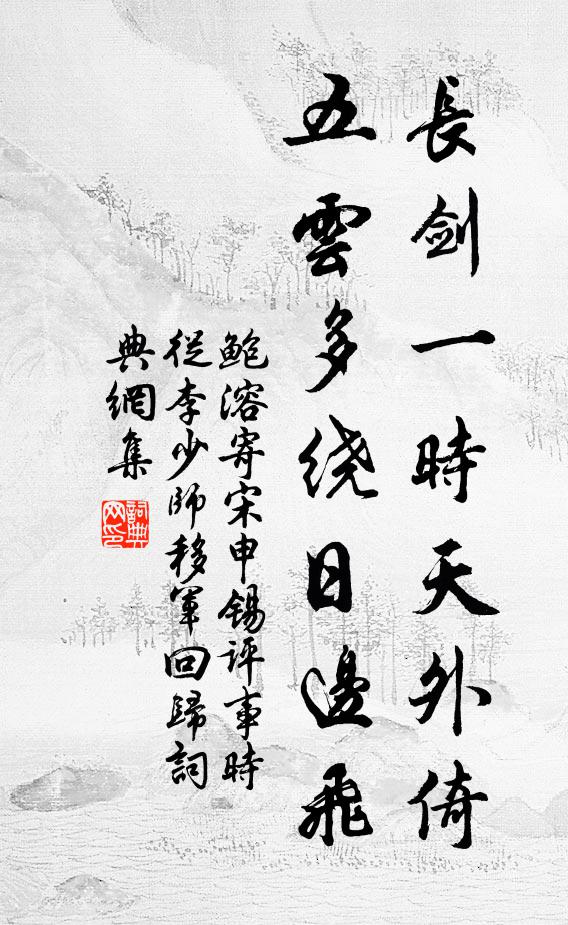 長剑一時天外倚
五雲多绕日邊飛
鲍溶寄宋申锡评事時
從李少師移军回歸詞
典網集
詞典
网印